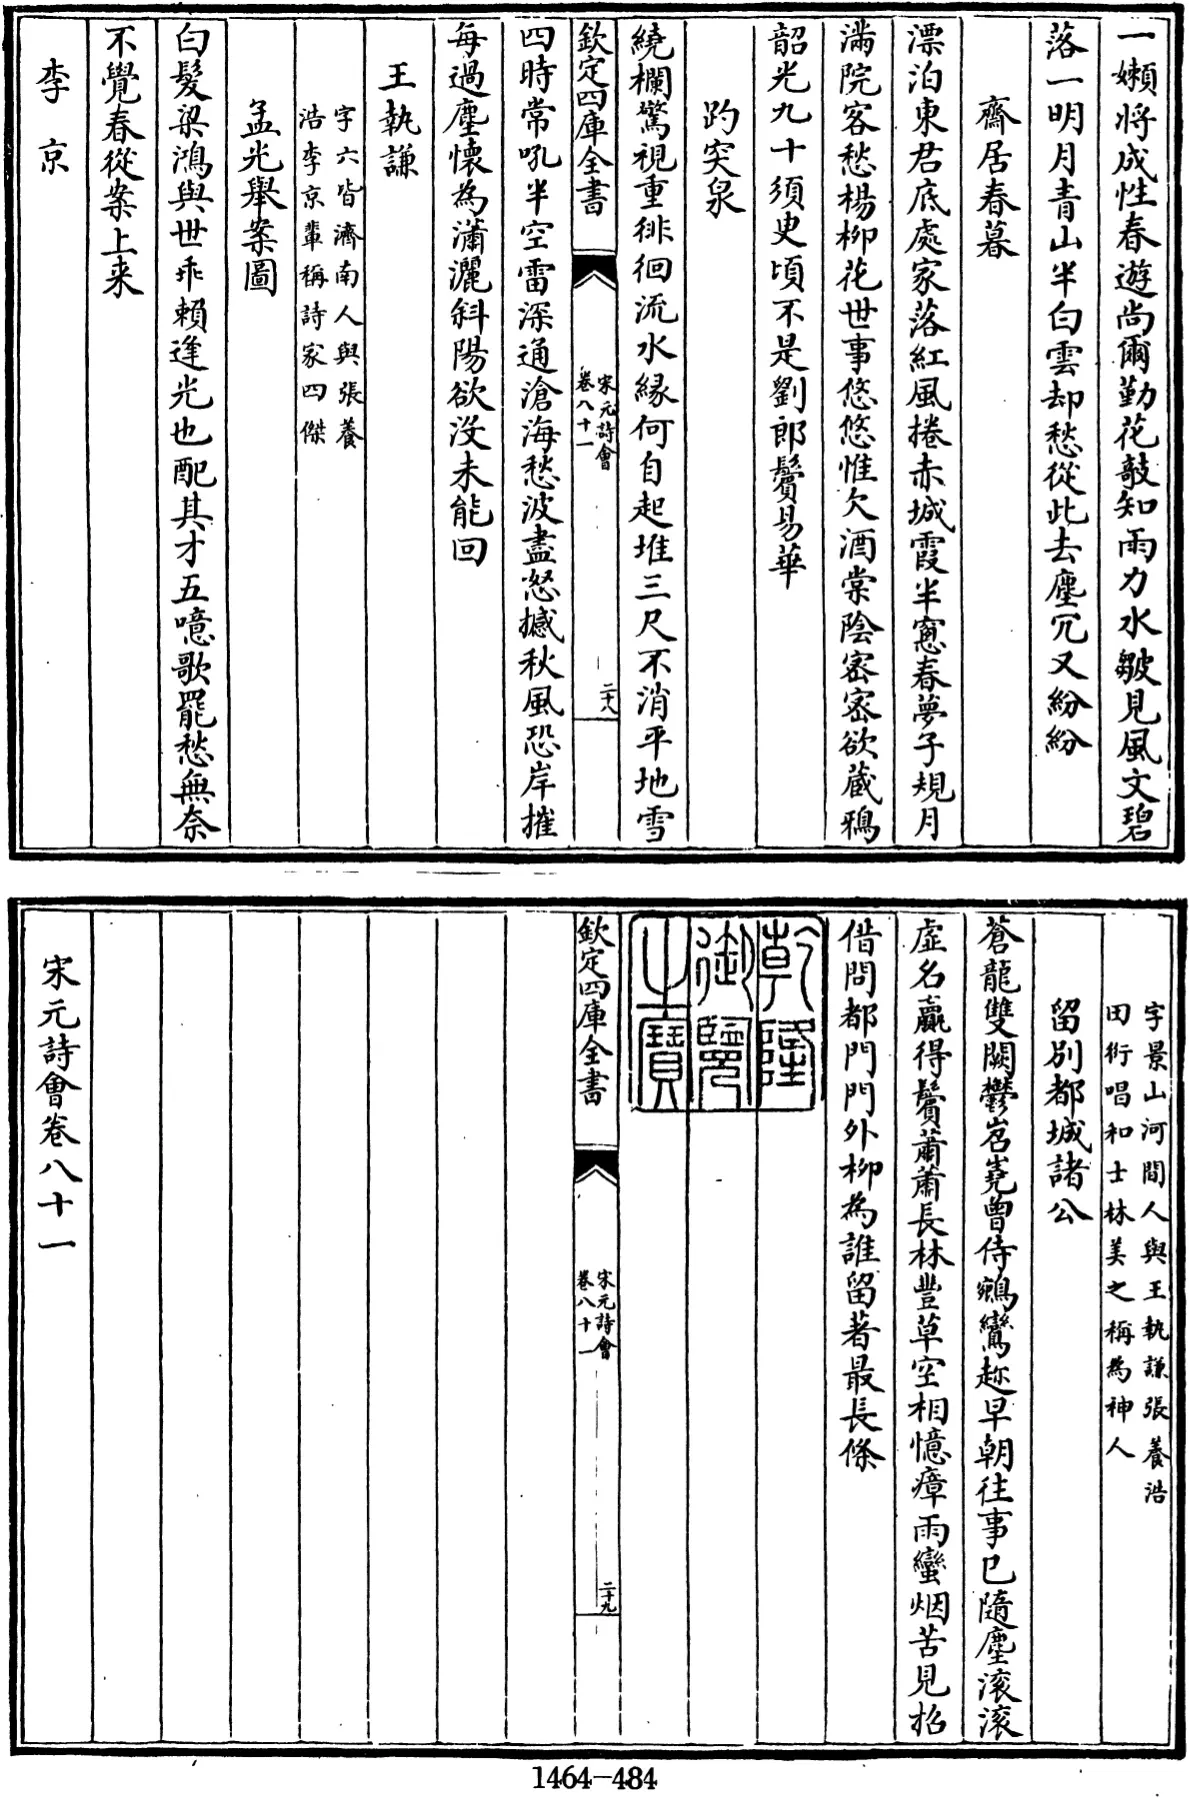 一嬾将成性春遊尚爾勤花敲知雨力水皺見風文碧
落一明月青山半白雲却愁從此去塵冗又紛紛
齋居春暮
漂泊東君底處家落紅風捲赤城霞半窻春夢子規月
滿院客愁楊柳花世事悠悠惟欠酒棠陰密密欲蔵鴉
韶光九十須史頃不是劉郎鬢易華
趵突泉
繞欄驚視重徘徊流水緣何自起堆三尺不消平地雪
欽定四庫全書
宋元詩會
卷八十一
二十八
四時常吼半空雷深通滄海愁波盡怒撼秋風恐岸摧
每過塵懷為瀟灑斜陽欲没未能回
王執謙
字六皆濟南人與張養
浩李京輩稱詩家四傑
孟光舉案圖
白髮梁鴻與世乖賴逢光也配其才五噫歌罷愁無奈
不覺春從案上来
李京
字景山河間人與王執謙張養浩
田衍唱和士林美之稱為神人
留别都城諸公
蒼龍雙闕鬱岧嶤曾侍鵷鸞趂早朝往事已隨塵滚滚
虛名贏得鬢蕭蕭長林豐草空相憶瘴雨蠻烟苦見招
借問都門門外柳為誰留著最長條
乾隆
御覽
之寶
欽定四庫全書
宋元詩會
卷八十一
二十九
宋元詩會卷八十一
1464-484